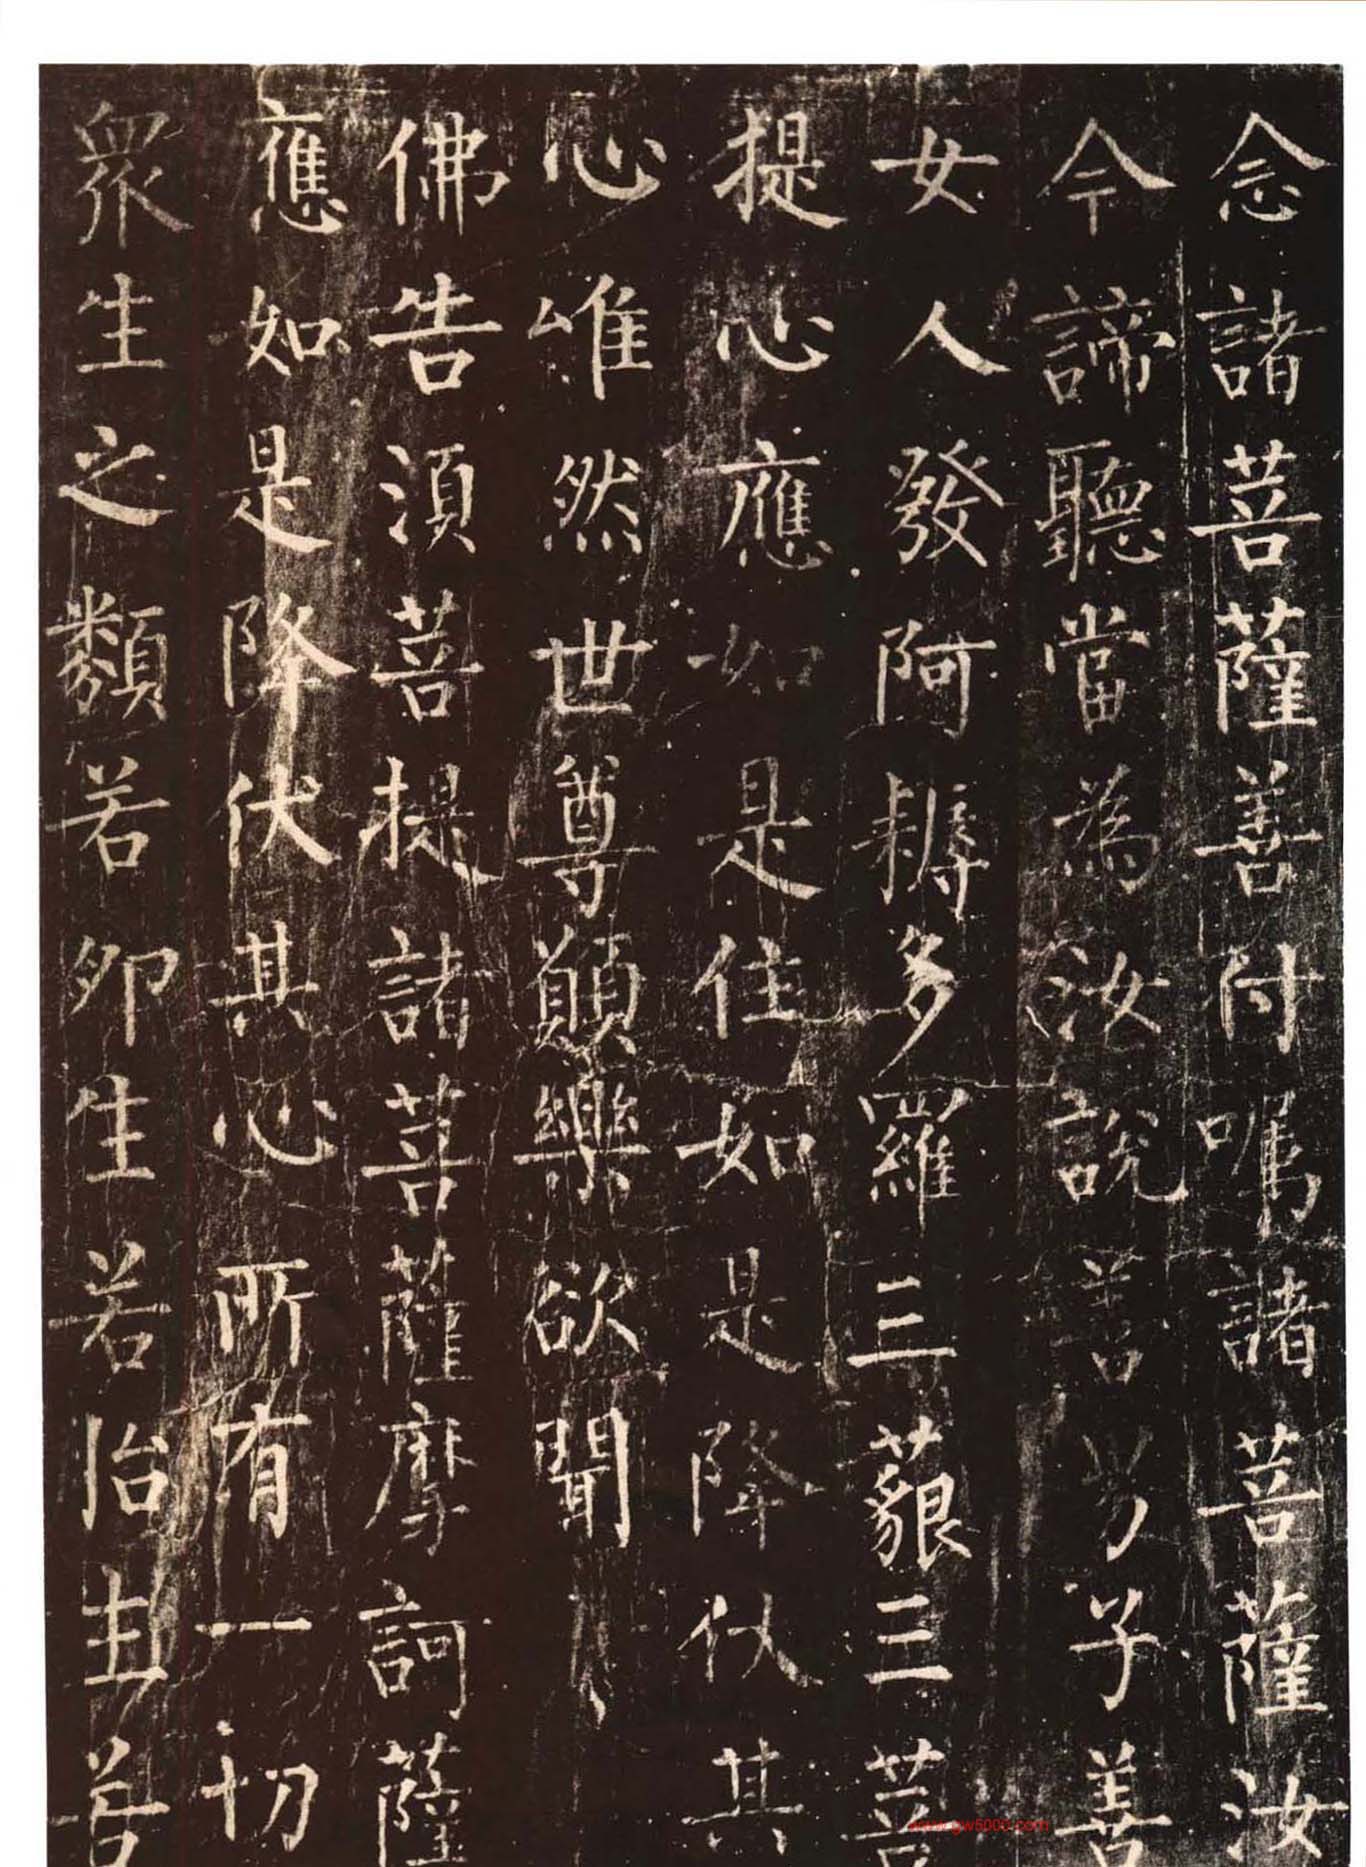 念諸菩薩善付囑諸菩薩汝
今諦聽當為汝說善男子善
女人發阿耨多羅三藐三菩
提心應如是住如是降伏其
心唯然世尊願樂欲聞
佛告須菩提諸菩薩摩訶薩
應如是降伏其心所有一切
衆生之類若卵生若胎生若
www.gw5000.com